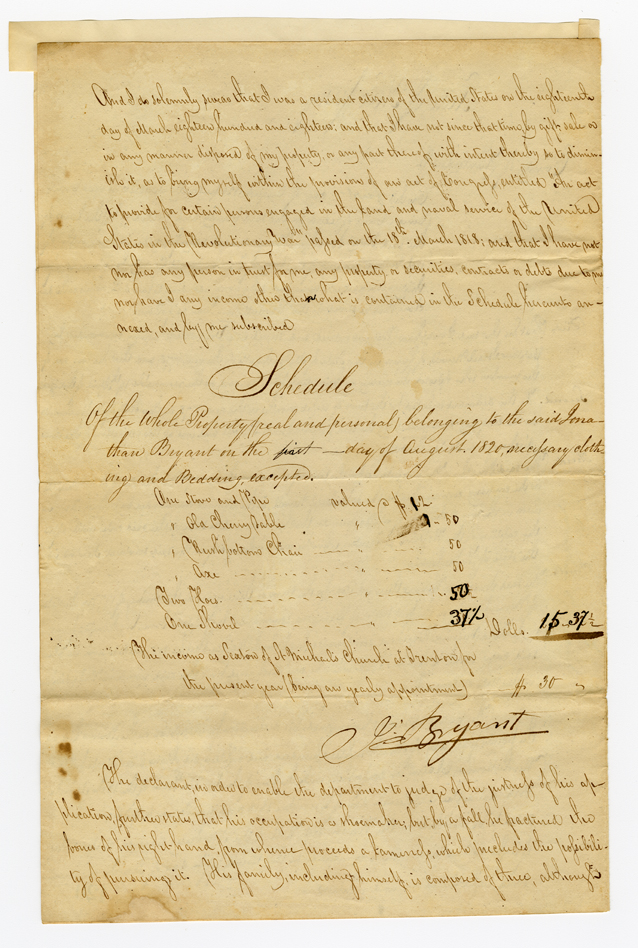 And I do solemnly swear that I was a resident citizen of the United States on the eighteenth
day of March eighteen hundred and eighteen; and that I have not since that time, by gift sale or
in any manner disposed of my property, or any part thereof with intent thereby so to dimin-
ish it, as to bring myself within the provision of an act of Congress, entitled "An act
to provide for certain persons engaged in the land and naval service of the United
States in the Revolutionary War" passed on the 18th. March 1818; and that I have not
nor has any person in trust for me, any property or securities, contracts or debts due to me
nor have I any income other than what is contained in the Schedule hereunto an-
nexed, and by me subscribed
Schedule
Of the Whole Property (real and personal) belonging to the said Jona-
than Bryant on the first day of August, 1820, necessary cloth-
ing and Bedding, excepted.
One Stove and Pipe valued $ 12
" Old Cherry Table " 50
" Rush bottom Chair 50
" Axe " 50
Two Hoes 50
One Shovel " 37½
Dolls. 15.37½
The income as Sexton of St Michael's Church at Trenton for
the present year (being an yearly appointment) $ 30 "
Jn. Bryant
The declarant, in order to enable the department to judge of the justness of his ap-
plication, further states, that his occupation is a shoemaker; but by a fall, he factured the
bones of his right hand, from whence proceeds a lameness, which precludes the possibili-
ty of pursuing it. His family, including himself, is composed of three, although